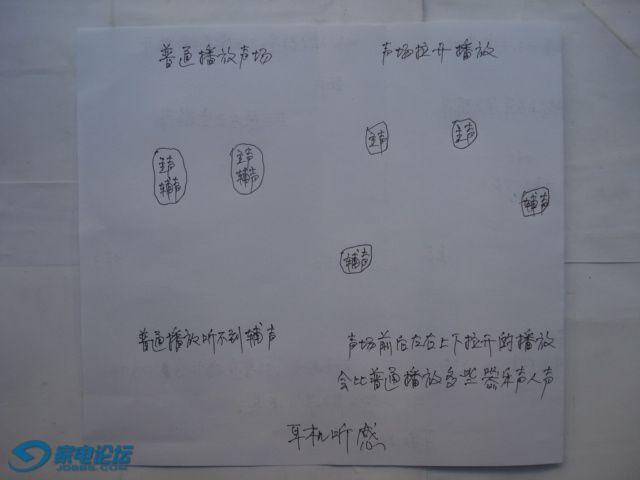 普通播放声场
声场拉开播放
主声
辅声
主声
辅声
主声
主声
辅声
辅声
普通播放听不到辅声
声场前后左右上下拉开的播放
会比普通播放多些器乐声人声
耳机听感
家电论坛
JDBBS.COM